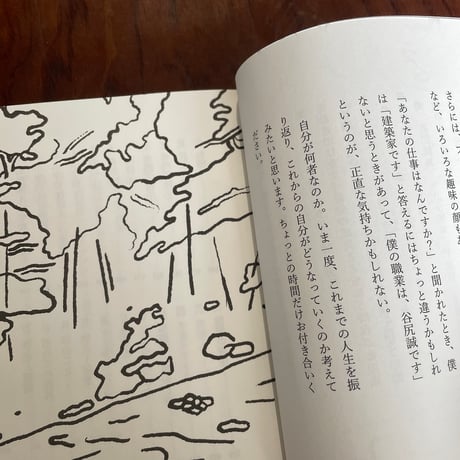 さらには、
など、いろいろな趣味の顔も
「あなたの仕事はなんですか？」と聞かれたとき、僕
は「建築家です」と答えるにはちょっと違うかもしれ
ないと思うときがあって、「僕の職業は、谷尻誠です」
というのが、正直な気持ちかもしれない。
自分が何者なのか。いま一度、これまでの人生を振
り返り、これからの自分がどうなっていくのか考えて
みたいと思います。ちょっとの時間だけお付き合いく
ださい。